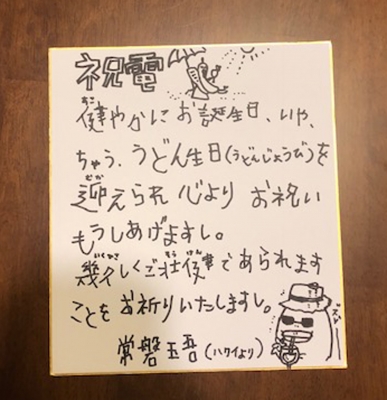 祝電
健やかにお誕生日、いや、
ちゃう、うどん生日(うどんじょうび)を
迎えられ心より お祝い
もうしあげますし。
幾久しくご壮健であられます
ことをお祈りいたしますし。
常磐玉吾(ハワイより)